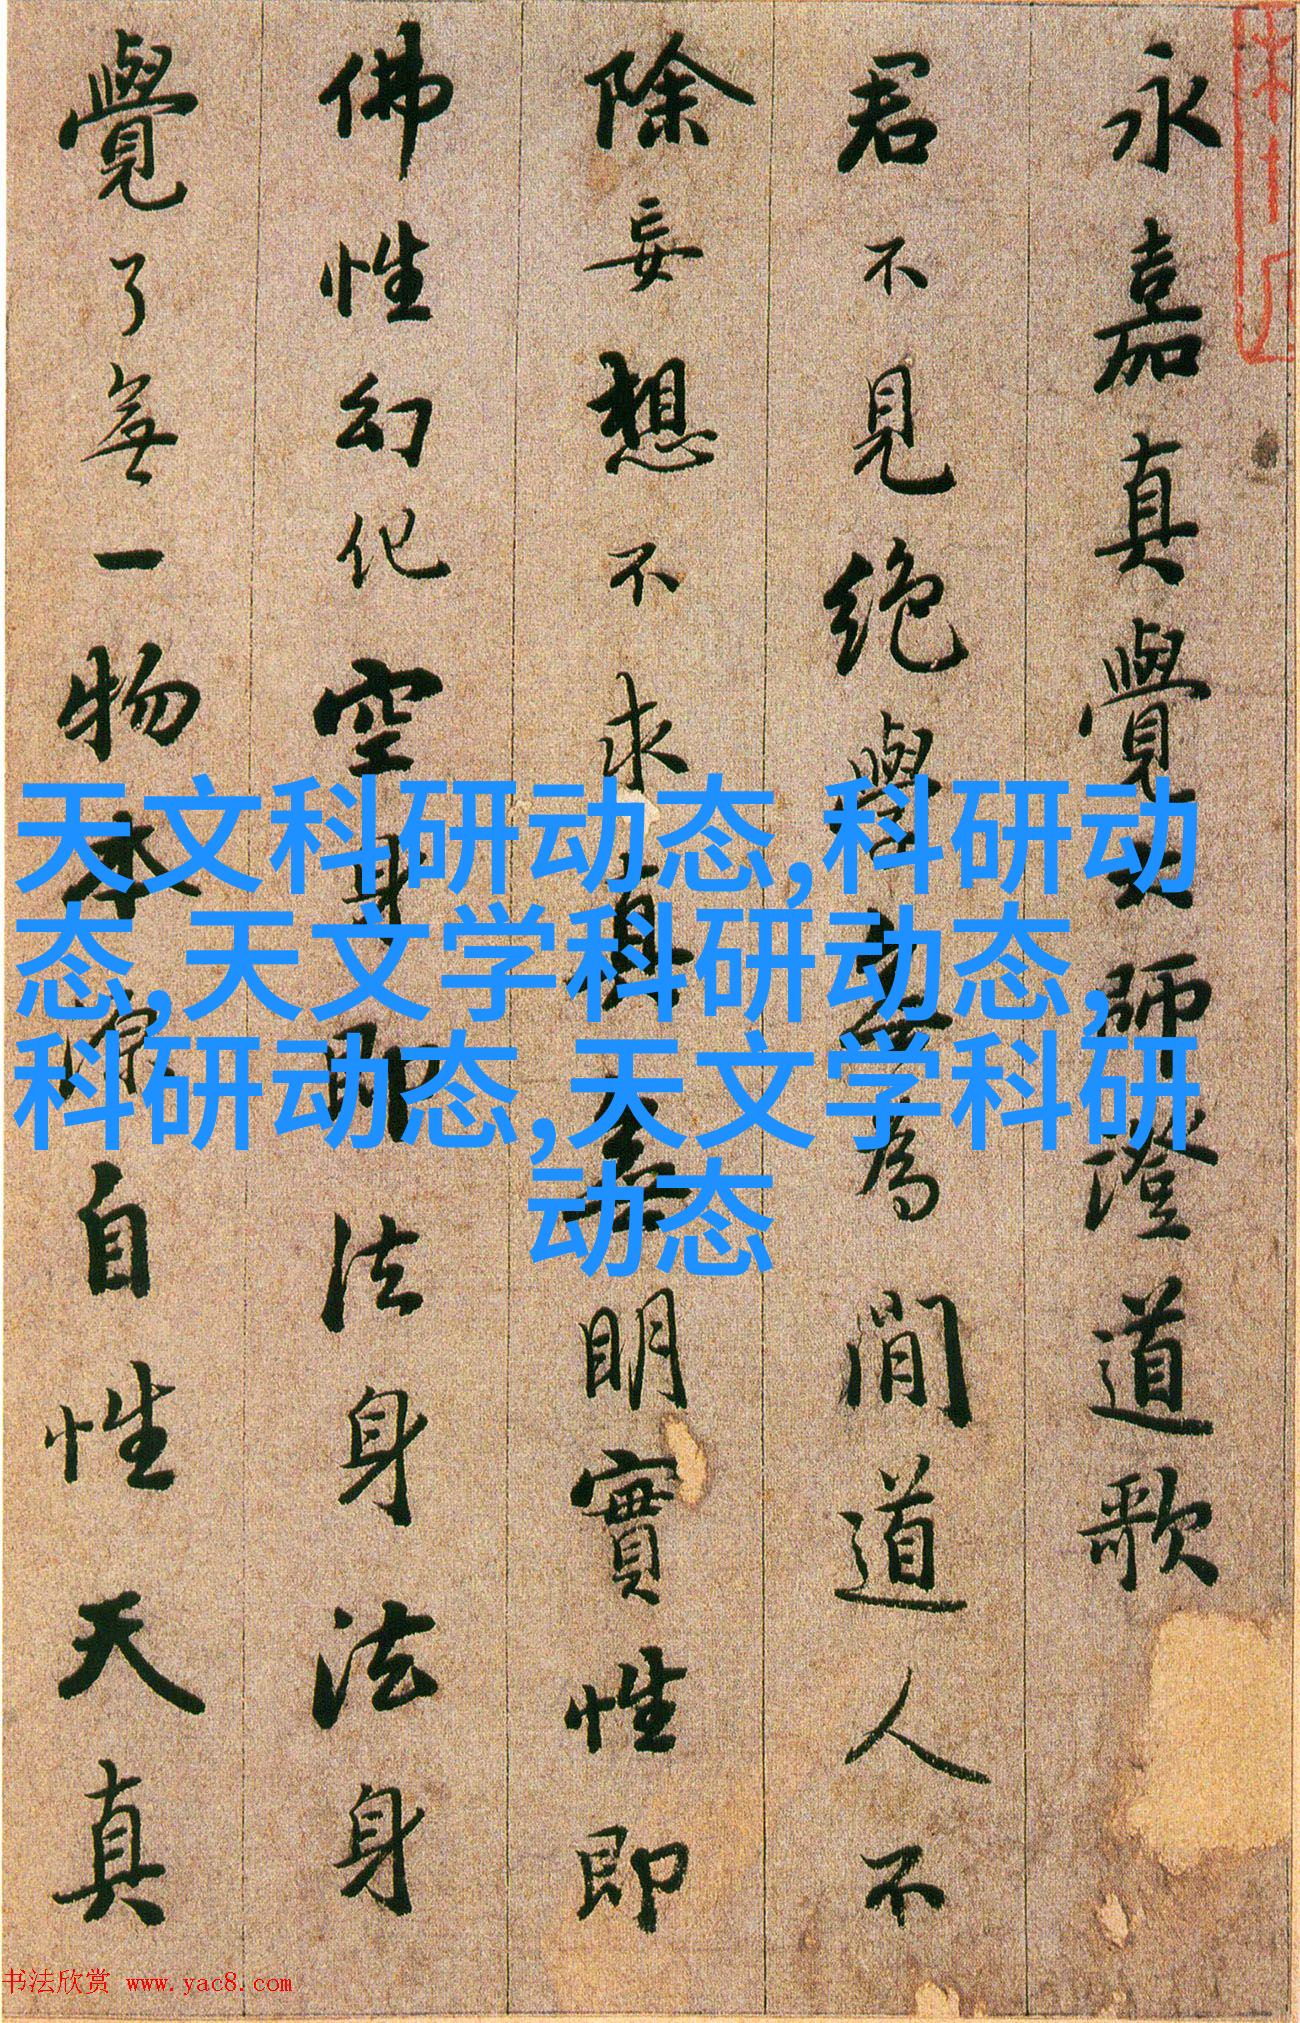 永嘉真覺大師澄道歌
君不見絕學無為閒道人不
除妄想不求真無明實性即
佛性幻化空身即法身法身
覺了無一物本源自性天真
天文科研动态,科研动
态,天文学科研动态,
科研动态,天文学科研
动态
书法欣赏 www.yac8.com